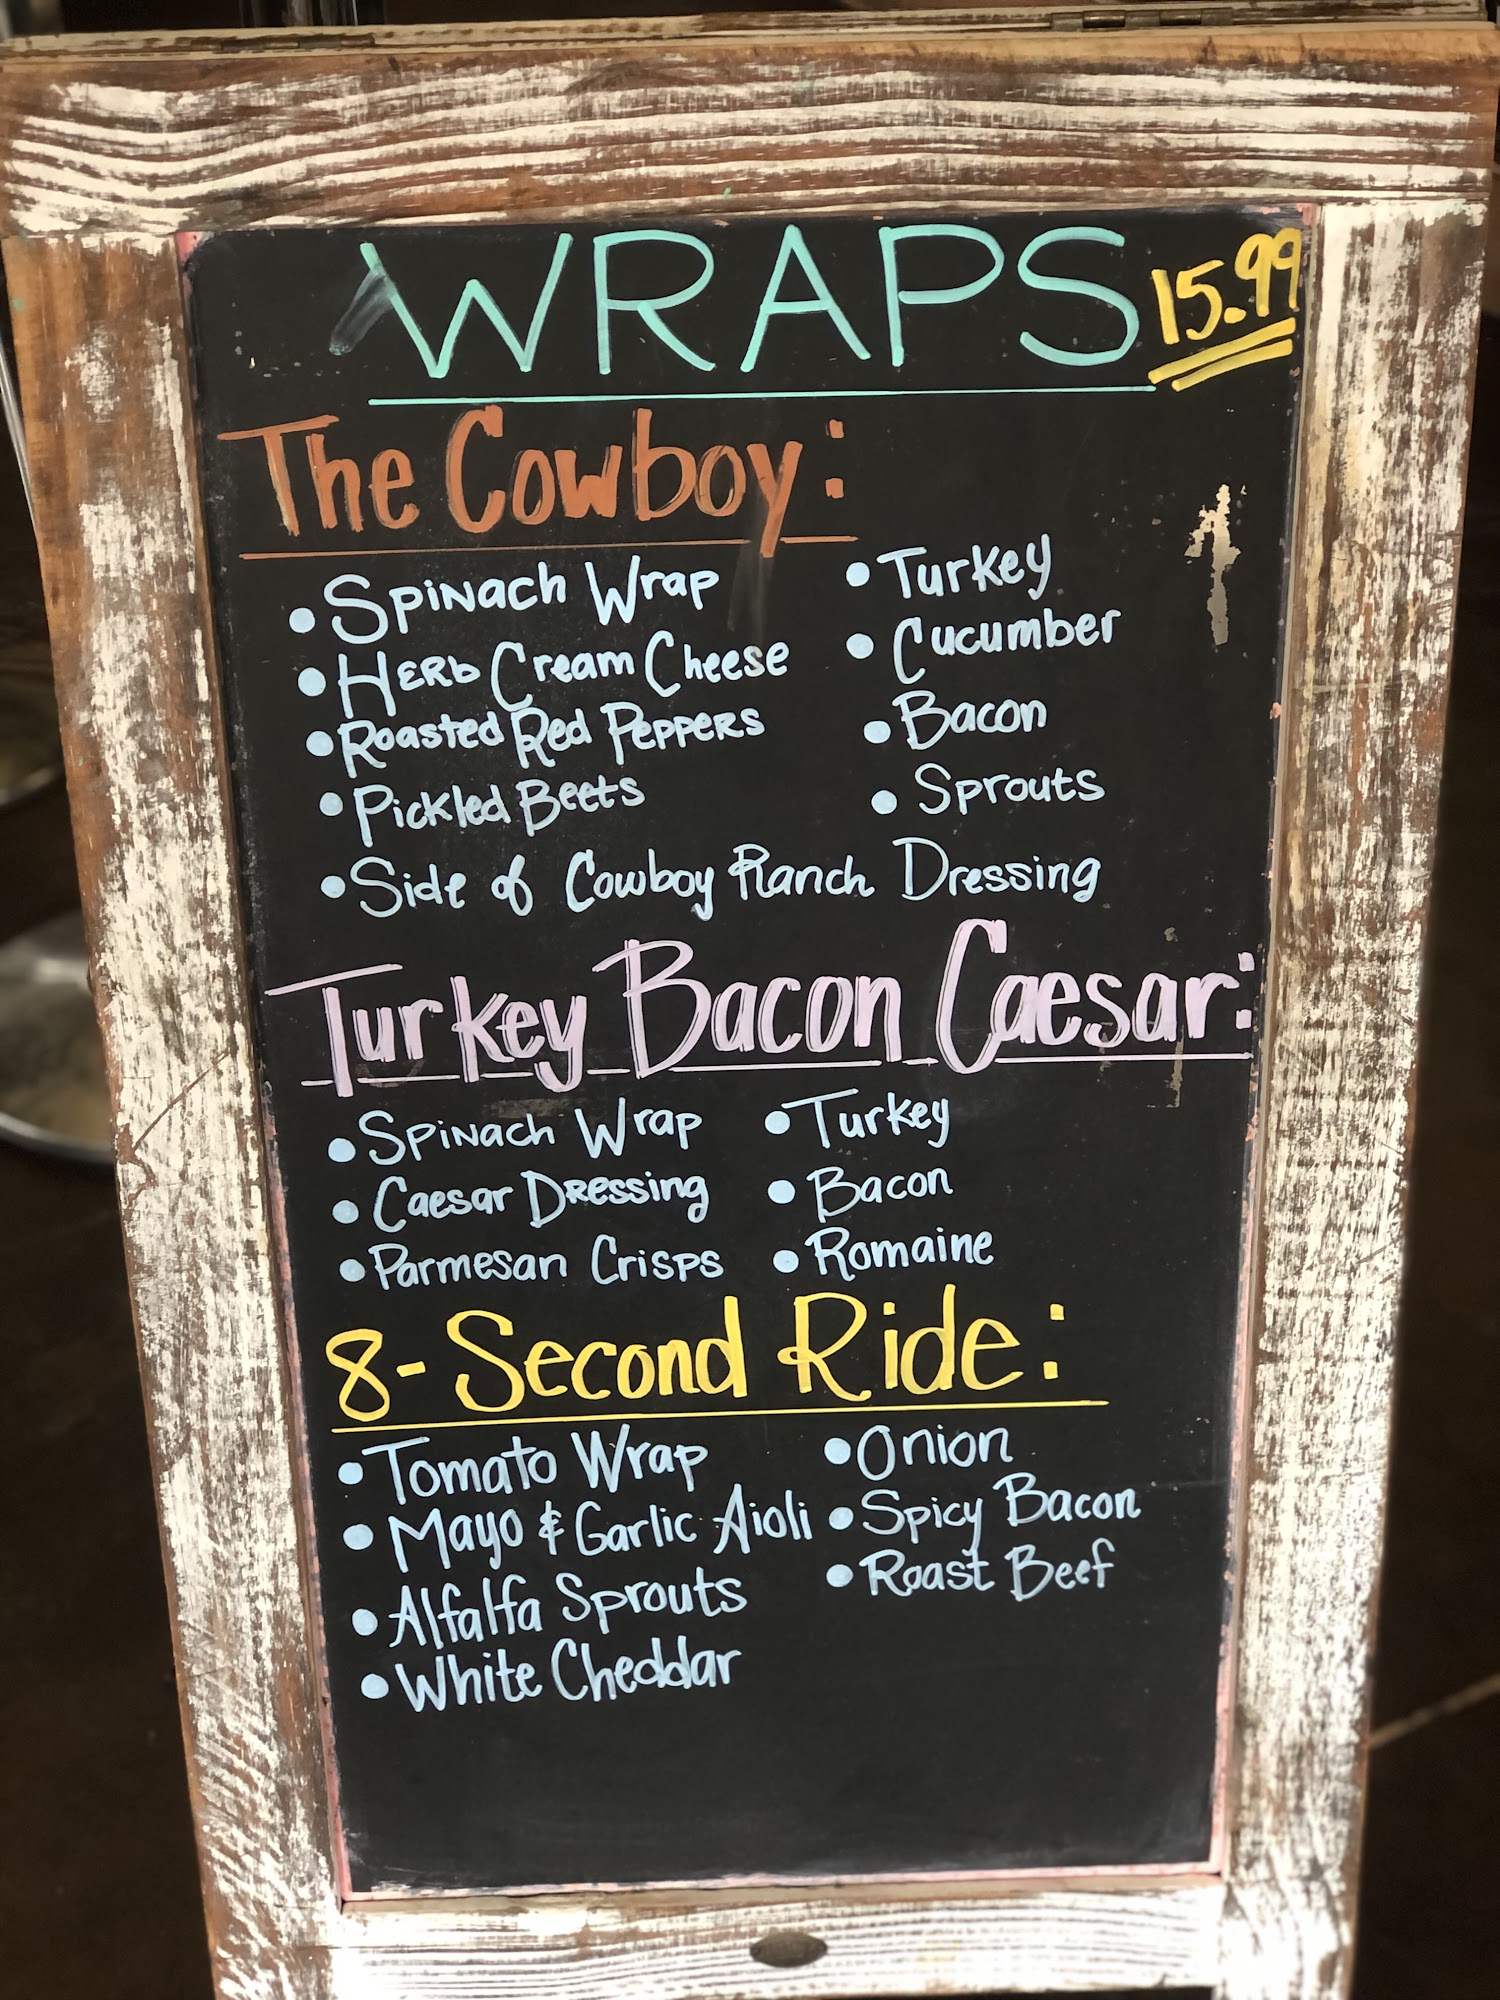 WRAPS 15.99
The Cowboy:
• Spinach Wrap
• Herb Cream Cheese
• Roasted Red Peppers
• Pickled Beets
• Turkey
• Cucumber
• Bacon
• Sprouts
• Side of Cowboy Ranch Dressing
Turkey Bacon Caesar:
• Spinach Wrap
• Caesar Dressing
• Parmesan Crisps
• Turkey
• Bacon
• Romaine
8-Second Ride:
• Tomato Wrap
• Mayo & Garlic Aioli
• Alfalfa Sprouts
• White Cheddar
• Onion
• Spicy Bacon
• Roast Beef